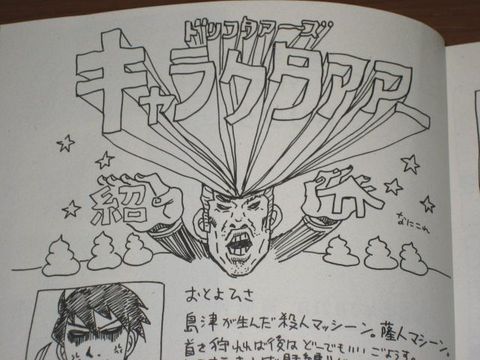 ドリフタアーズ
キャラクタアァ
紹介
なにこれ
おとよひさ
島津が生んだ殺人マッシーン。薩人マシーン。
首さ狩れれば後はどーでもいい